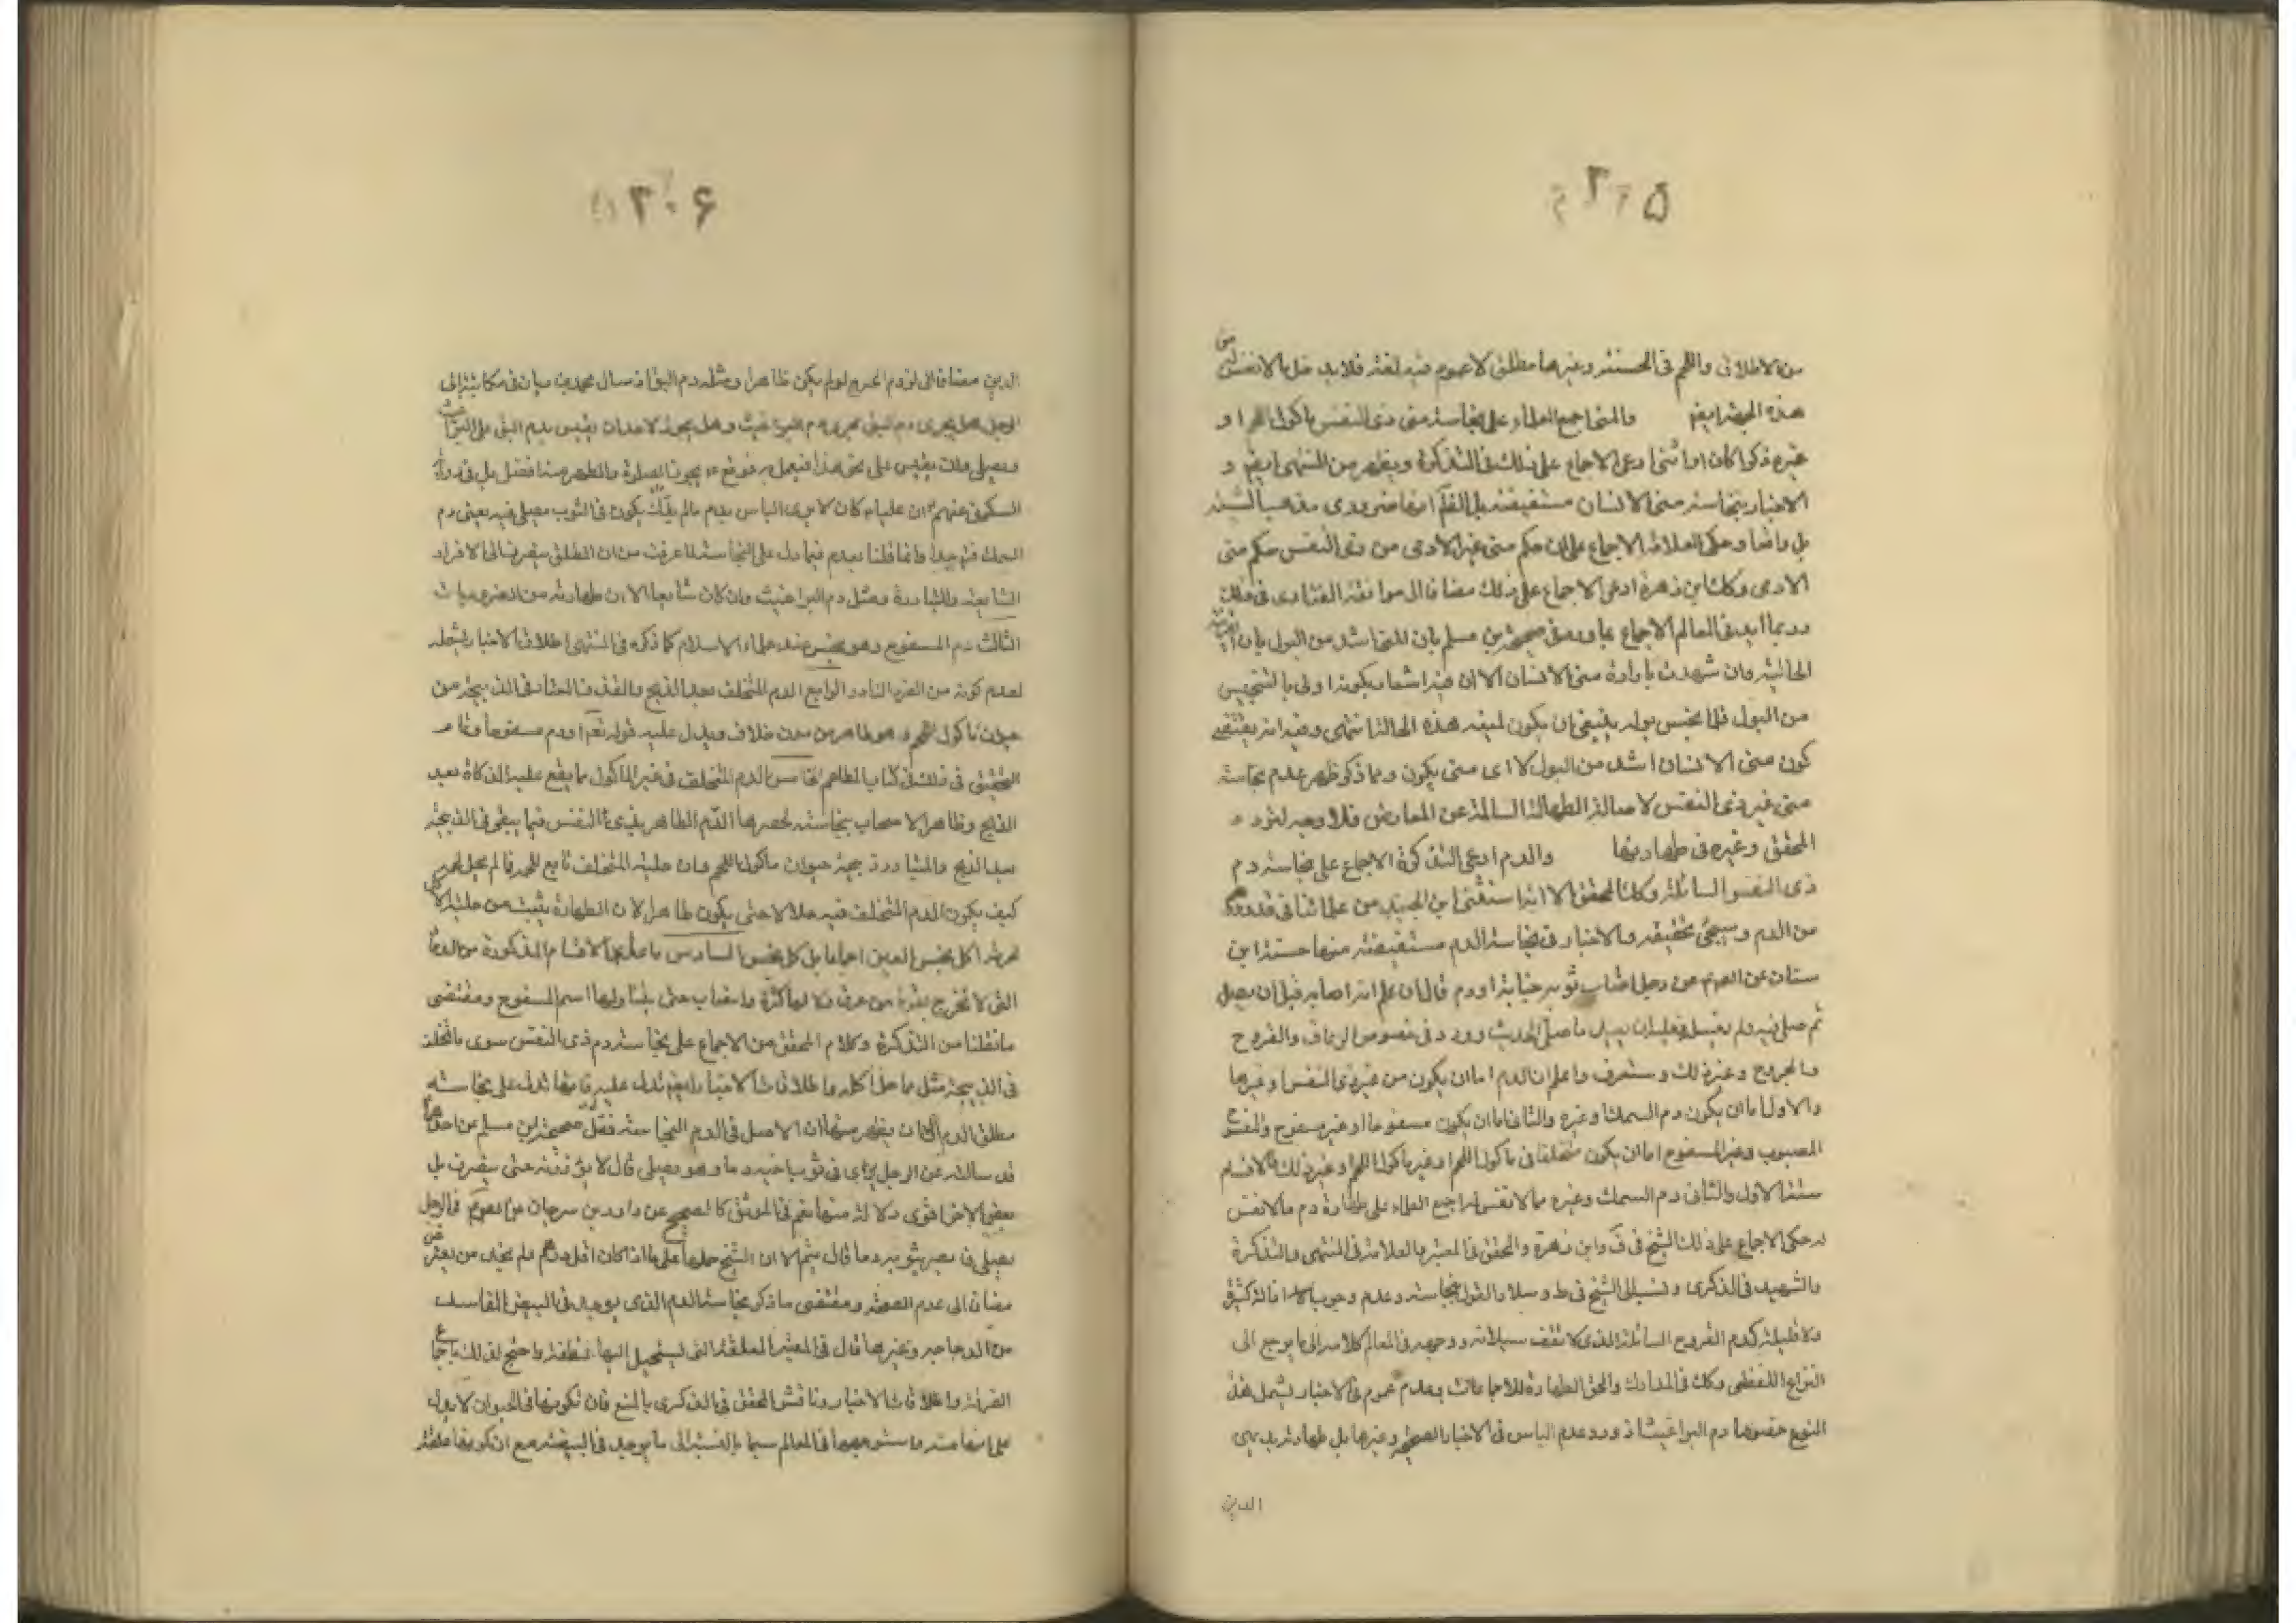 ۳۰۵
من الاطلاق واللحم فى الحسنة وغيرها مطلق لا عموم فيه لغة فلا بد
هذه الجهة ايض والمنى اجمع العلماء على نجاسة منى ذى النفس ماكول اللحم او
غيره ذكرا كان او انثى ادعى الاجماع على ذلك فى التذكرة ويظهر من المنتهى ايض و
الاخبار بنجاسة منى الانسان مستفيضة بل الظ
بل واضحا وحكى العلامة الاجماع على ان حكم منى غير الادمى من ذى النفس حكم منى
الادمى وكك ابن زهرة ادعى الاجماع على ذلك مضافا الى موافقة الفتاوى فى ذلك
وربما ايد فى المعالم الاجماع بما ورد فى صحيحة بن مسلم بان المنى اشد من البول بان
الحالية وان شهدت بارادة منى الانسان الا ان فيه اشعار بكونه اولى بالتنجيس
من البول فلما نجس بوله ينبغى ان يكون لمنيه هذه الحالة انتهى وفيه انه يقتضى
كون منى الانسان اشد من البول لا اى منى يكون ومما ذكر ظهر عدم نجاسة
منى غير ذى النفس لاصالة الطهارة السالمة عن المعارض فلا وجه لتردد
المحقق وغيره فى طهارتها والدم ادعى التذكرة الاجماع على نجاسة دم
ذى النفس السائلة وكك المحقق الا انه استثنى ابن الجنيد من علمائنا فى
من الدم وسيجئ تحقيقه والاخبار فى نجاسة الدم مستفيضة منها حسنة ابن
سنان عن الص عن رجل اصاب ثوبه جنابة او دم قال ان علم انه اصابه قبل ان يصلى
ثم صلى فيه ولم يغسل فعليه ان يعيد ما صلى الحديث وورد فى خصوص الرعاف والقروح
والجروح وغير ذلك وستعرف واعلم ان الدم اما ان يكون من غير ذى النفس او غيرها
والاول اما ان يكون دم السمك او غيره والثانى اما ان يكون مسفوحا او غير مسفوح
المصبوب وغير المسفوح اما ان يكون متخلفا فى ماكول اللحم او غير ماكول اللحم او غير ذلك فالاقسام
ستة الاول والثانى دم السمك وغيره مما لا نفس له اجمع العلماء على طهارة دم ما لا نفس
له حكى الاجماع على ذلك الشيخ فى ف وابن زهرة والمحقق فى المعتبر والعلامة فى المنتهى والتذكرة
والشهيد فى الذكرى ونسب الى الشيخ فى ط وسلار القول بنجاسته وعدم وجوب ازالة كثيره
ولا قليله كدم القروح السائلة الذى لا تقف سيلانه ووجهه فى المعالم كلامه الى ما يرجع الى
النزاع اللفظى وكك فى المدارك والحق الطهارة للاجماعات وعدم عموم فى الاخبار ليشمل هذا
النوع خصوصا دم البراغيث اذ ورد عدم الباس فى الاخبار الصحيحة وغيرها بل طهارته بديهى
الدين
۳۰۶
الدين مضافا الى لزوم الحرج لو لم يكن طاهرا ومثله دم البق اذ سال محمد بن ريان فى مكاتبة الى
الرجل هل يجرى دم البق مجرى دم البراغيث وهل يجوز لاحد ان يقيس بدم البق على البراغيث
ويصلى وان يقيس على نحو هذا فيعمل به فوقع ع يجوز الصلوة والطهر منه افضل بل فى رواية
السكونى عنهم ان عليا ع كان لا يرى الباس بدم ما لم يذك يكون فى الثوب فيصلى فيه يعنى دم
السمك وانما قلنا بعدم فيما دل على النجاسة لما عرفت من ان المطلق ينصرف الى الافراد
الشايعة والمتبادرة ومثل دم البراغيث وان كان شايعا الا ان طهارته من الضروريات
الثالث دم المسفوح وهو نجس عند علماء الاسلام كما ذكره فى المنتهى اطلاق الاخبار يشمله
لعدم كونه من الفرد النادر الرابع الدم المتخلف بعد الذبح والقذف المعتاد فى الذبيحة من
حيوان ماكول اللحم وهو طاهر من بدون خلاف ويدل عليه قوله تعالى او دم مسفوحا وتمام
التحقيق فى ذلك فى كتاب المطاعم الخامس الدم المتخلف فى غير الماكول مما يقع عليه الذكاة بعد
الذبح وظاهر الاصحاب نجاسته لحصرهم الدم الطاهر من ذى النفس فيما يبقى فى الذبيحة
بعد الذبح والمتبادر ذبيحة حيوان ماكول اللحم وان حلية المتخلف تابع للحم فما لم يحل لحمه
كيف يكون الدم المتخلف فيه حلالا حتى يكون طاهرا لان الطهارة يثبت من حلية الاكل
لحرمة اكل نجس العين اجماعا بل كل نجس السادس ما عدا هذا الاقسام المذكورة من الدماء
التى لا تخرج بقوة من عرق ولا لها كثرة وانصباب حتى يتناولها اسم المسفوح ومقتضى
ما نقلنا من التذكرة وكلام المحقق من الاجماع على نجاسة دم ذى النفس سوى ما تخلف
فى الذبيحة مثل ما حل اكله واطلاقات الاخبار ايض تدل عليه فانها تدل على نجاسة
مطلق الدم الا ان يظهر منها ان الاصل فى الدم النجاسة فنقل صحيحة ابن مسلم عن احدهما
قد سالته عن الرجل يرى فى ثوب اخيه دما وهو يصلى قال لا يؤذنه حتى ينصرف بل
بعض الاخر اقوى دلالة منها نعم فى الموثق كالصحيح عن داود بن سرحان عن الص فى الرجل
يصلى فابصر بثوبه دما قال يتم الا ان الشيخ حملها على ما اذا كان اقل من درهم
مضافا الى عدم الصحة ومقتضى ما ذكر نجاسة الدم الذى يوجد فى البيض الفاسد
من الدجاجة وغيرها قال فى المعتبر العلقة التى يستحيل اليها نطفة واحتج لذلك باجماع
الفرقة واطلاقات الاخبار وناقش المحقق فى الذكرى بالمنع فان تكونها فى الحيوان لا يدل
على انها منه واستوجهها فى المعالم سيما بالنسبة الى ما يوجد فى البيضة مع ان كونها علقة